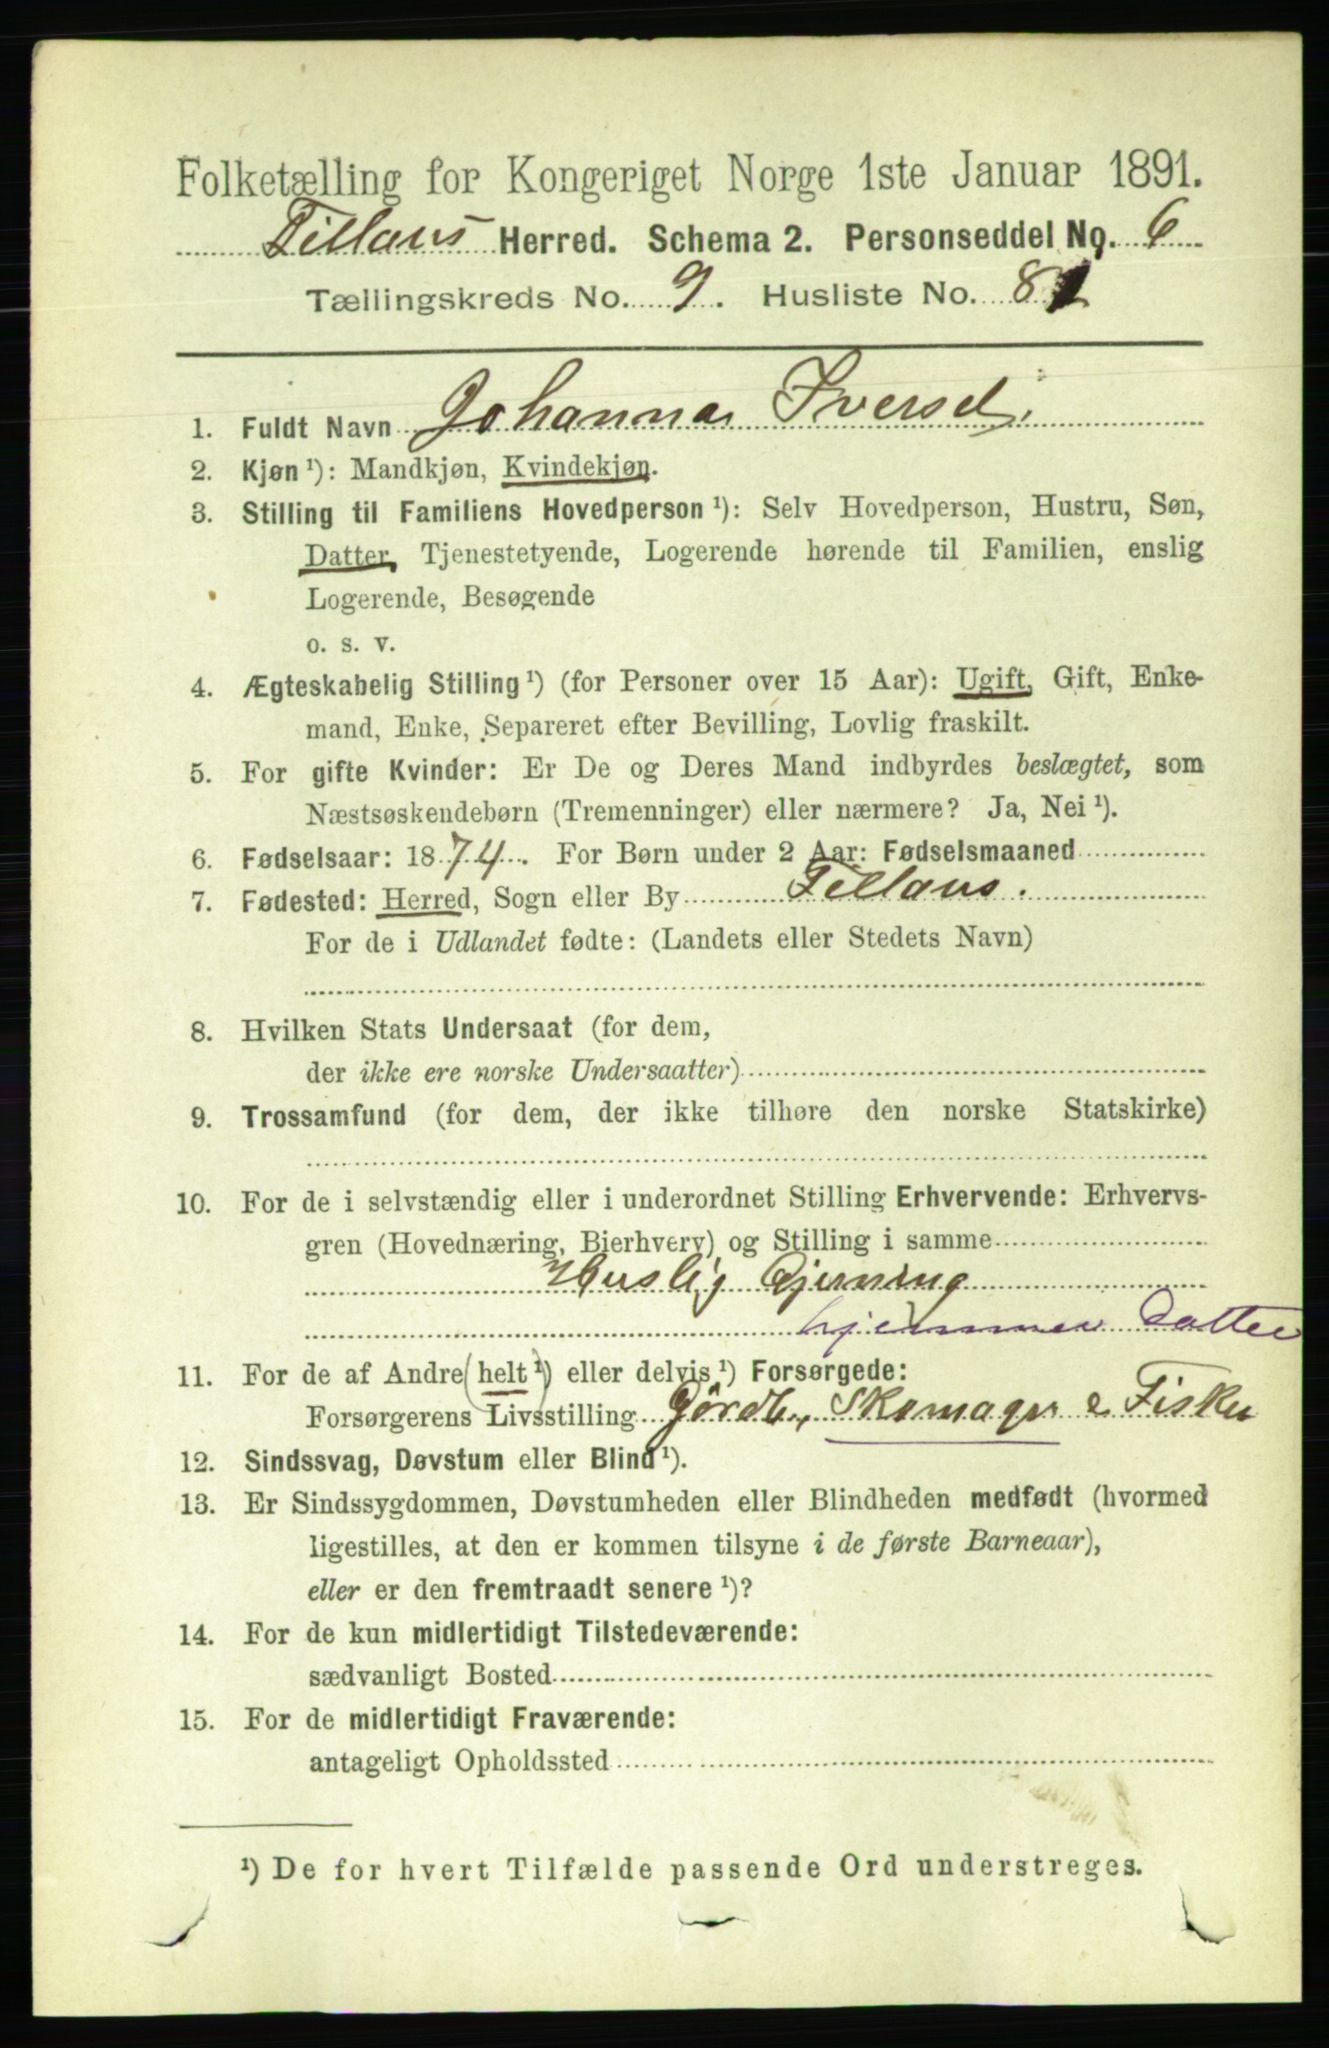 Folketælling for Kongeriget Norge 1ste Januar 1891.
Fillans Herred. Schema 2. Personseddel No. 6
Tællingskreds No. 9. Husliste No. 8
1. Fuldt Navn Johanna Iversd.
2. Kjøn ¹): Mandkjøn, Kvindekjøn.
3. Stilling til Familiens Hovedperson ¹): Selv Hovedperson, Hustru, Søn,
Datter, Tjenestetyende, Logerende hørende til Familien, enslig
Logerende, Besøgende
o. s. v.
4. Ægteskabelig Stilling ¹) (for Personer over 15 Aar): Ugift, Gift, Enke-
mand, Enke, Separeret efter Bevilling, Lovlig fraskilt.
5. For gifte Kvinder: Er De og Deres Mand indbyrdes beslægtet, som
Næstsøskendebørn (Tremenninger) eller nærmere? Ja, Nei ¹).
6. Fødselsaar: 1874. For Børn under 2 Aar: Fødselsmaaned
7. Fødested: Herred, Sogn eller By Fillans.
For de i Udlandet fødte: (Landets eller Stedets Navn)
8. Hvilken Stats Undersaat (for dem,
der ikke ere norske Undersaatter)
9. Trossamfund (for dem, der ikke tilhøre den norske Statskirke)
10. For de i selvstændig eller i underordnet Stilling Erhvervende: Erhvervs-
gren (Hovednæring, Bierhverv) og Stilling i samme
Huslig Gjerning
hjemmev Datter
11. For de af Andre (helt ¹) eller delvis ¹) Forsørgede:
Forsørgerens Livsstilling Gårdb., Skomager & Fisker
12. Sindssvag, Døvstum eller Blind ¹).
13. Er Sindssygdommen, Døvstumheden eller Blindheden medfødt (hvormed
ligestilles, at den er kommen tilsyne i de første Barneaar),
eller er den fremtraadt senere ¹)?
14. For de kun midlertidigt Tilstedeværende:
sædvanligt Bosted
15. For de midlertidigt Fraværende:
antageligt Opholdssted
¹) De for hvert Tilfælde passende Ord understreges.